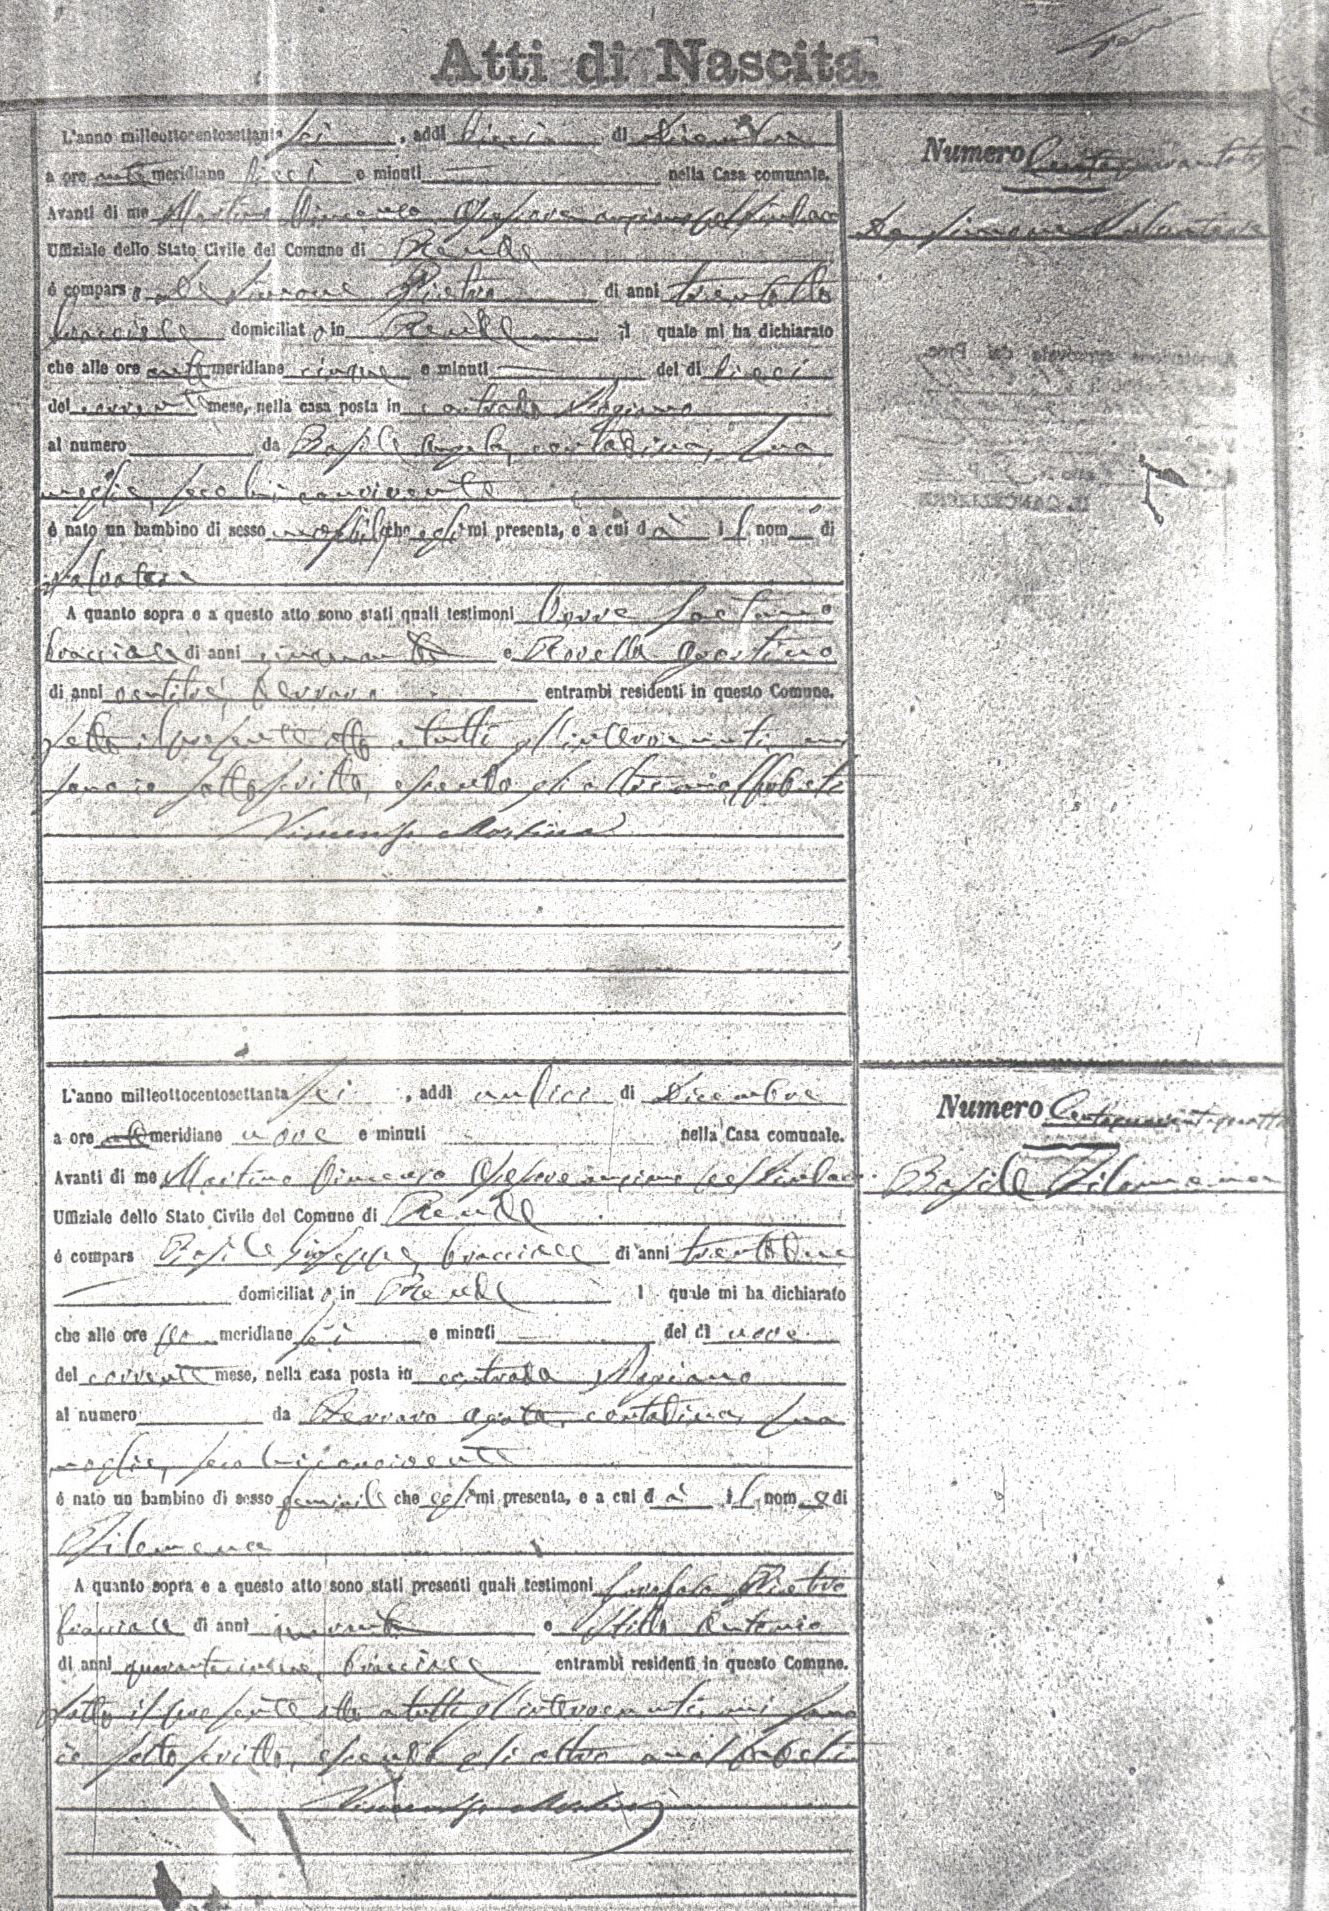 Atti di Nascita.
L'anno milleottocentosettanta sei, addì dieci di Dicembre
a ore ante meridiane dieci e minuti nella Casa comunale.
Numero
Avanti di me Martino Vincenzo Assessore anziano pel Sindaco
De Simone Salvatore
Uffiziale dello Stato Civile del Comune di Rende
è compars o De Simone Pietro di anni trentotto
bracciale domiciliat o in Rende il quale mi ha dichiarato
che alle ore ante meridiane cinque e minuti del dì dieci
del corrente mese, nella casa posta in contrada
al numero da Basile Angela, contadina, sua
moglie, seco lui convivente
è nato un bambino di sesso maschile che egli mi presenta, e a cui d à il nom di
Salvatore
A quanto sopra e a questo atto sono stati quali testimoni Gaetano
bracciale di anni e Rovella Agostino
di anni ventitre, entrambi residenti in questo Comune.
Letto il presente atto a tutti gl'intervenuti, mi
sono io sottoscritto, essendo gli altri analfabeti
Vincenzo Martino
L'anno milleottocentosettanta sei, addì undici di Dicembre
a ore meridiane nove e minuti nella Casa comunale.
Numero
Avanti di me Martino Vincenzo Assessore anziano pel Sindaco
Basile Filomena
Uffiziale dello Stato Civile del Comune di Rende
è compars Basile Giuseppe, bracciale di anni trentadue
domiciliat o in Rende l quale mi ha dichiarato
che alle ore meridiane sei e minuti del dì nove
del corrente mese, nella casa posta in contrada
al numero da Agata, contadina, sua
moglie, seco lui convivente
è nato un bambino di sesso feminile che egli mi presenta, e a cui d à il nom e di
Filomena
A quanto sopra e a questo atto sono stati presenti quali testimoni Pietro
bracciale di anni e Stillo Antonio
di anni quarantacinque, bracciale entrambi residenti in questo Comune.
Letto il presente atto a tutti gl'intervenuti, mi sono
io sottoscritto, essendo gli altri analfabeti
Vincenzo Martino